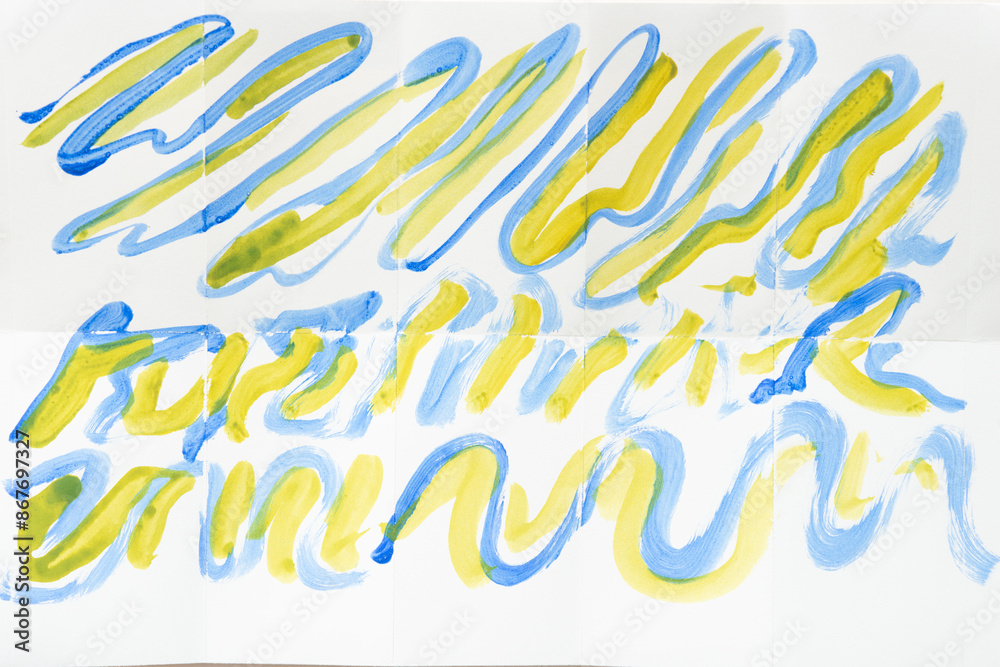 Adobe Stock | #867697327